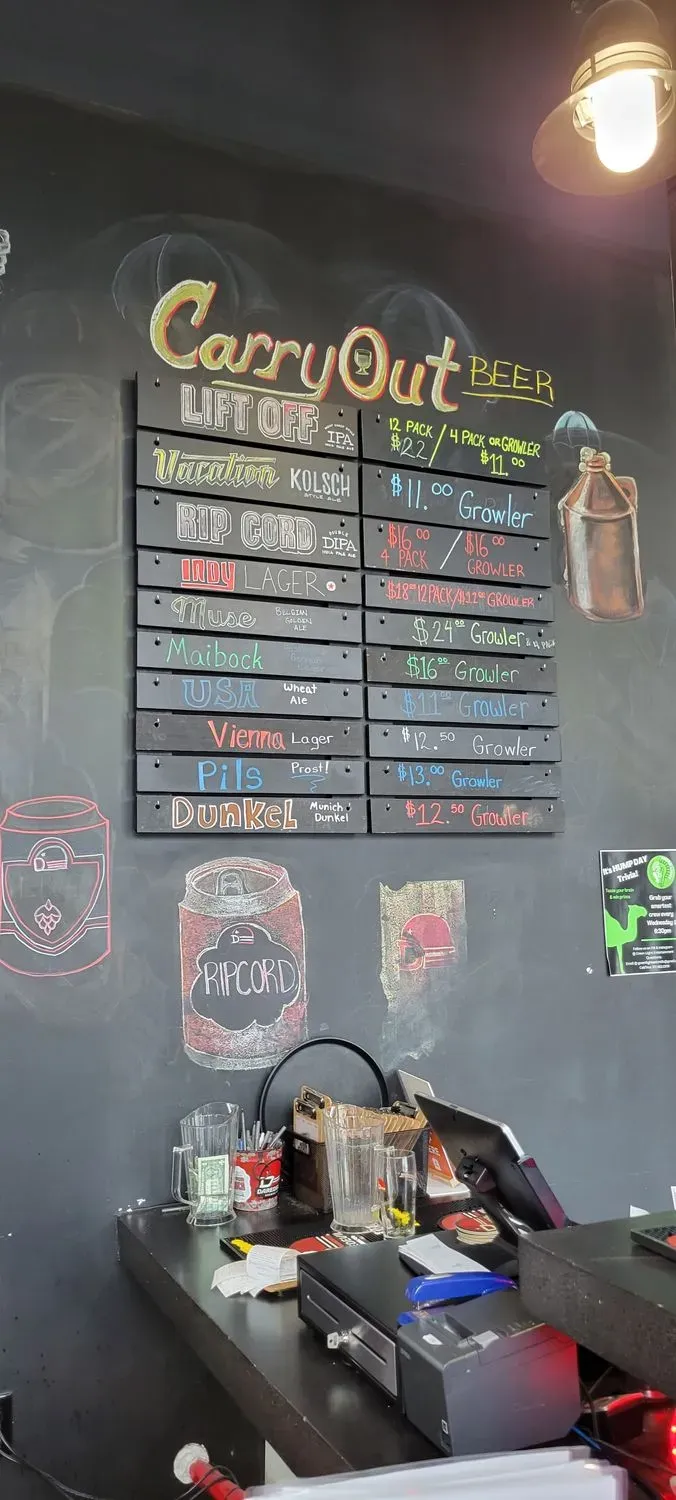 CarryOut BEER
LIFT OFF IPA
12 PACK $22 / 4 PACK OR GROWLER $11.00
Vacation KOLSCH STYLE ALE
$11.00 Growler
RIP CORD DOUBLE DIPA INDIA PALE ALE
$16.00 4 PACK / $16.00 GROWLER
INDY LAGER
$18.00 12PACK/$12.00 GROWLER
Muse BELGIAN GOLDEN ALE
$24.00 Growler & 4 PACK
Maibock
$16.00 Growler
USA Wheat Ale
$11.00 Growler
Vienna Lager
$12.50 Growler
Pils Prost!
$13.00 Growler
DUNKEL Munich Dunkel
$12.50 Growler
RIPCORD
It's HUMP DAY
Trivia!
Grab your
smartest
crew every
Wednesday
6:30pm